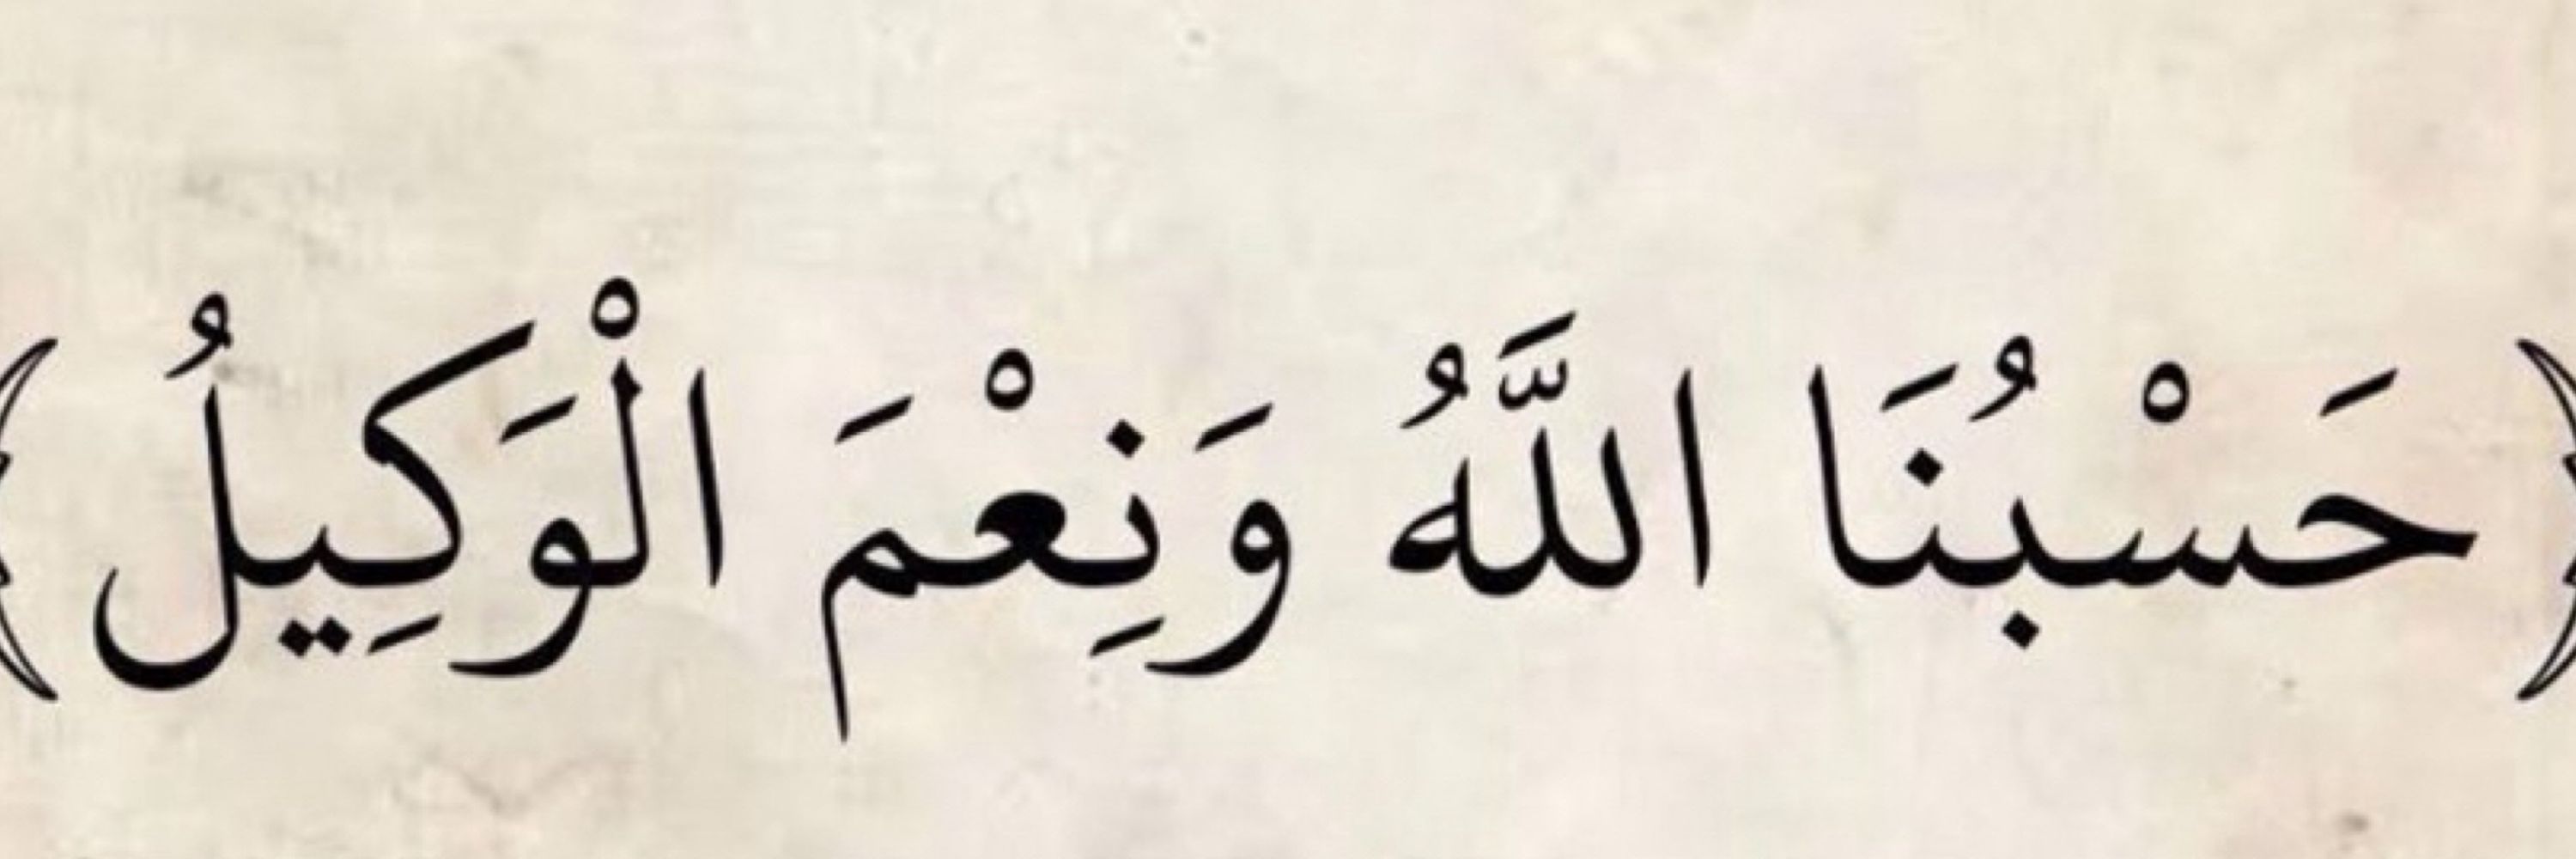 ﴿حَسْبُنَا اللَّهُ وَنِعْمَ الْوَكِيلُ﴾